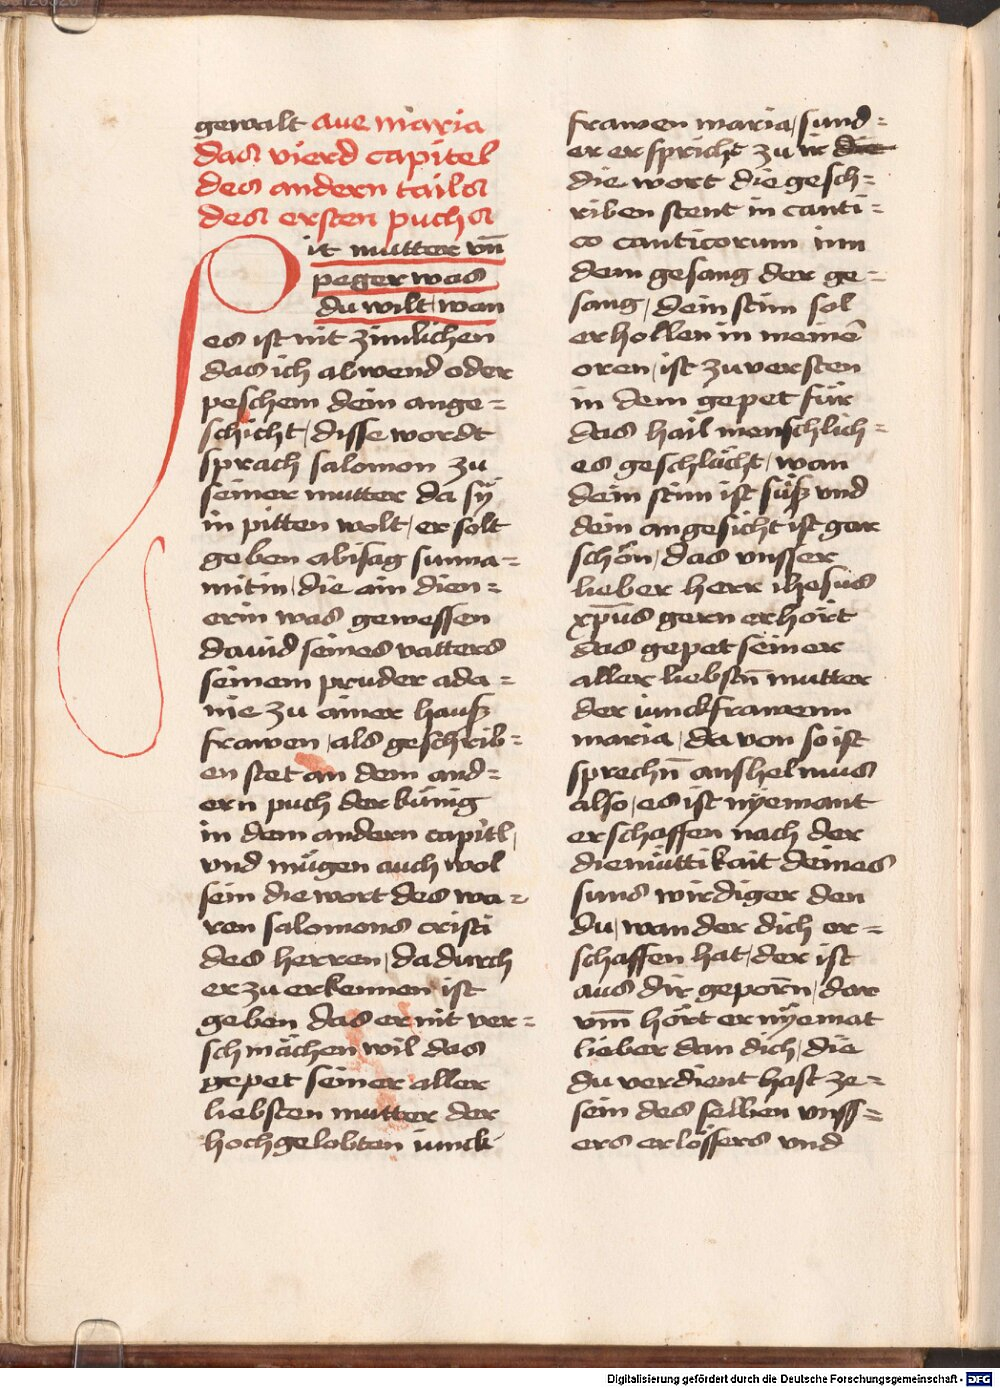 gewalt aue maria
das vierd capitel
des andern tails
des ersten puchs
Pit mutter vn̄
peger was
du wilt, wan
es ist nit zimlichen
das ich abwend oder
peschem dein ange=
schicht, disse wordt
sprach salomon zu
seiner mutter da sÿ
in pitten wolt, er solt
geben abisag sunna=
mitin, die ain dien=
erin was gewessen
dauid seines vatters
seinem pruder ada=
nie zu ainer hauß
frawen, als geschrib=
en stet an dem and=
ern puch der künig
in dem andern capitl,
vnd mügen auch wol
sein die wort des wa=
ren salomons cristi
des herren, da durch
er zu erkennen ist
geben das er nit ver=
schmächen wil das
gepet seiner aller
liebsten mutter der
hochgelobten iunck
frawen maria, sund=
er er spricht zu ir
die wort die gesch=
riben stent in canti=
co canticorum inn
dem gesang der ge=
sang, dein stim sol
erhollen in meinē
oren, ist zu versten
in dem gepet für
das hail menschlich=
es geschlächt, wan
dein stim ist süß vnd
dein angesicht ist gar
schön, das vnsser
lieber herr ihesus
xp̄us gern erhört
das gepet seiner
aller liebstn̄ mutter
der iunckfrawenn
maria, da von so ist
sprechn̄ anshelmus
also, es ist nÿemant
erschaffen nach der
diemüttikait deines
suns wirdiger den
du, wan der dich er=
schaffen hat, der ist
aus dir geporn̄, dar
vm̄ hört er nÿemat
lieber dan dich, die
du verdient hast ze=
sein des selben vnss=
ers erlössers vnd
Digitalisierung gefördert durch die Deutsche Forschungsgemeinschaft - DFG